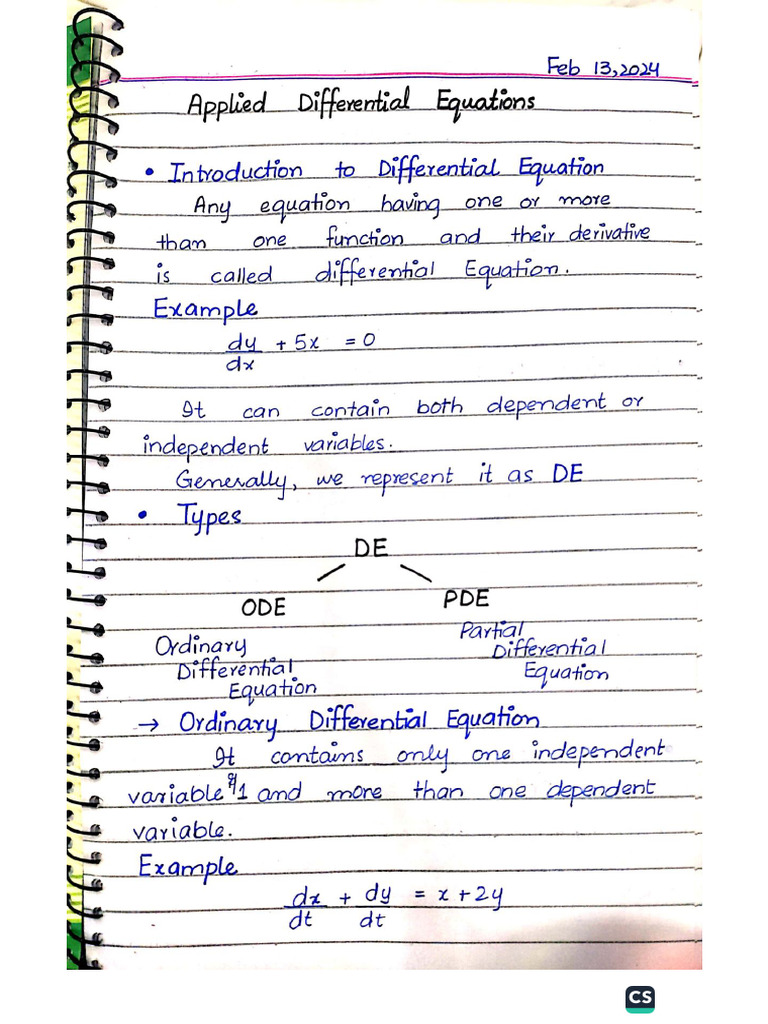 Feb 13,2024
Applied Differential Equations
• Introduction to Differential Equation
Any equation having one or more
than one function and their derivative
is called differential Equation.
Example
dy/dx + 5x = 0
It can contain both dependent or
independent variables.
Generally, we represent it as DE
• Types
DE
ODE PDE
Ordinary
Differential
Equation
Partial
Differential
Equation
→ Ordinary Differential Equation
It contains only one independent
variable 1 and more than one dependent
variable.
Example
dx/dt + dy/dt = x + 2y
CS